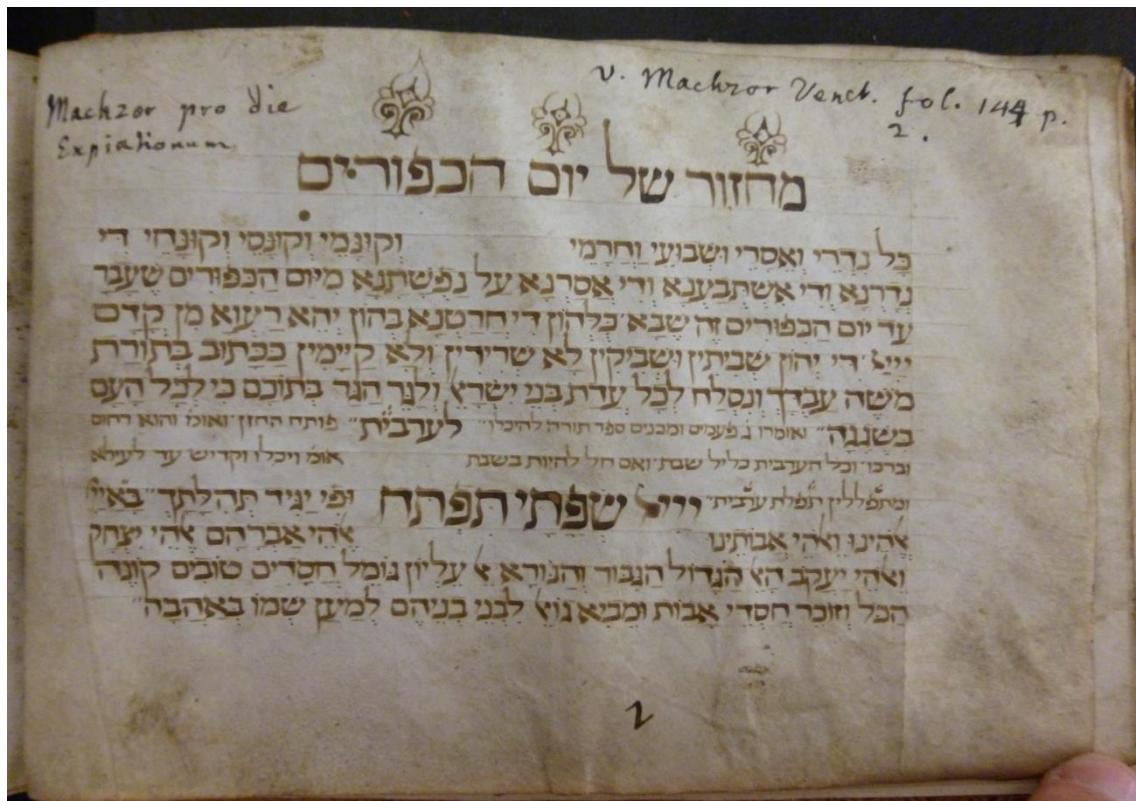 v. Machzor Venet. fol. 144 p.
2.
Machzor pro die
Expiationum.
מחזור של יום הכפורים
כל נדרי ואסרי ושבועי וחרמי וקונמי וקונסי וקונחי די
נדרנא ודי אשתבענא ודי אסרנא על נפשתנא מיום הכפורים שעבר
עד יום הכפורים זה שבא כלהון די חרטנא בהון יהא רעוא מן קדם
ייי די יהון שביתין ושביקין לא שרידין ולא קיימין ככתוב בתורת
משה עבדך ונסלח לכל עדת בני ישראל ולגר הגר בתוכם כי לכל העם
בשגגה ואומרו ג פעמים ומכנים ספר תורה להיכלו לערבית פותח החזן ואומ והוא רחום
וברכו וכל הערבית כליל שבת ואם חל להיות בשבת אומ ויכלו וקדיש עד לעילא
ומתפללין תפלת ערבית ייי שפתי תפתח ופי יגיד תהלתך בא״יי
אלהינו ואלהי אבותינו אלהי אברהם אלהי יצחק
ואלהי יעקב האל הגדול הגבור והנורא אל עליון גומל חסדים טובים קונה
הכל וזוכר חסדי אבות ומביא גואל לבני בניהם למען שמו באהבה
2